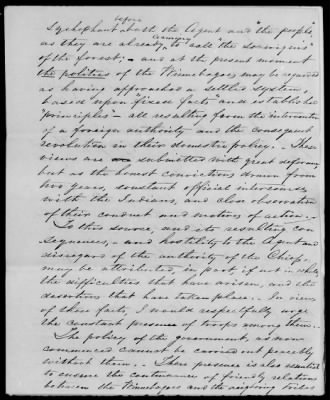 before
Sycophant both the Agent and "the people,"
as they are already beginning to call "the sovereigns"
of the forest; - and at the present moment
the politics of the Winnebagoes may be regarded
as having approached a settled system,
based upon "fixed facts" and established
"principles" - all resulting from the intervention
of a foreign authority and the consequent
revolution in their domestic policy. - These
views are submitted with great deference,
but as the honest convictions drawn from
two years, constant official intercourse
with the Indians, and close observation
of their conduct and motives of action. -
To this source, and its resulting con
sequences, - and hostility to the Agent and
disregard of the authority of the Chiefs,
may be attributed, in part, if not in whole,
the difficulties that have arisen, and the
desertions that have taken place. - In view
of these facts, I would respectfully urge
the constant presence of troops among them. -
The policy of the government, as now
commenced cannot be carried out peaceably
without them. - Their presence is also essential
to ensure the continuance of friendly relations
between the Winnebagoes and the neighboring tribes